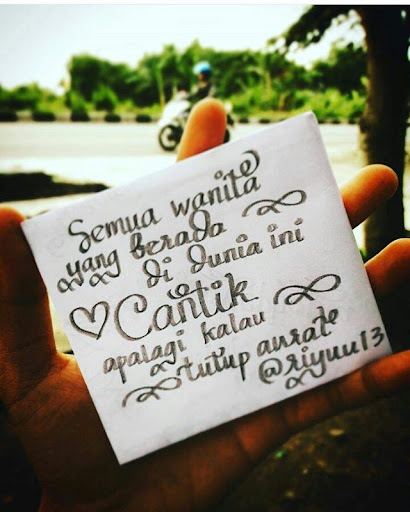 Semua wanita
yang berada
di dunia ini
Cantik
apalagi kalau
tutup aurate
@riyuu13